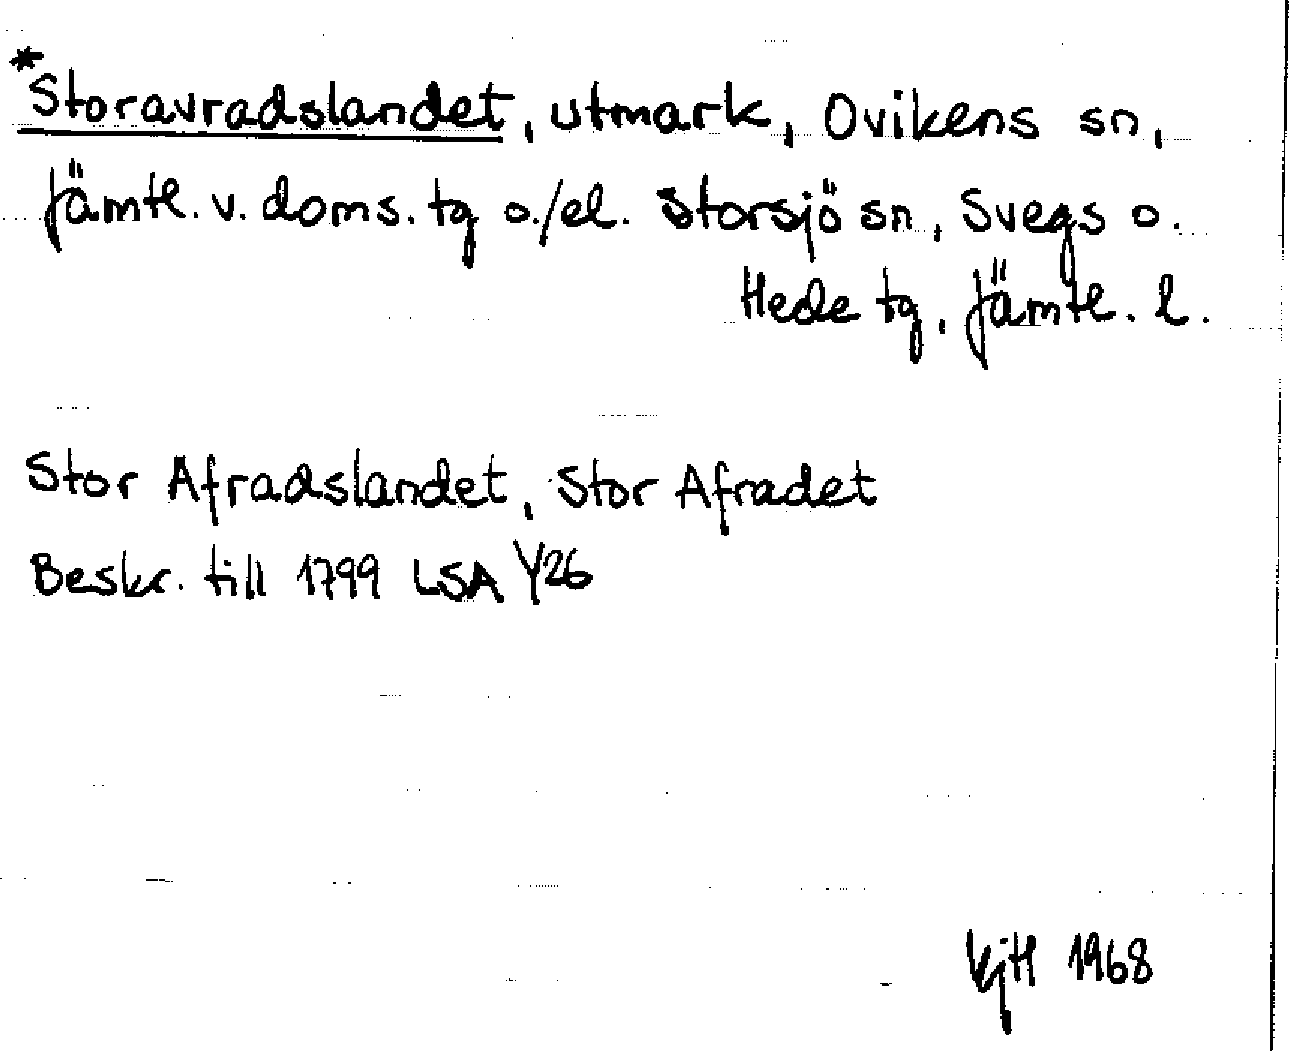 *Storavradslandet, utmark, Ovikens sn,
Jämtl. v. doms. tg o./el. Storsjö sn, Svegs o.
Hede tg, Jämtl. l.
Stor Afradslandet, Stor Afradet
Beskr. till 1799 LSA Y26
KjH 1968